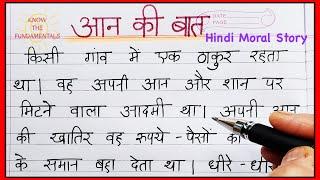 KNOW
THE
FUNDAMENTALS
आन की बात
DATE
PAGE
Hindi Moral Story
किसी गांव में एक ठाकुर रहता
था। वह अपनी आन और शान पर
मिटने वाला आदमी था। अपनी आन
की खातिर वह रूपये-पैसों को
के समान बहा देता था। धीरे-धीरे